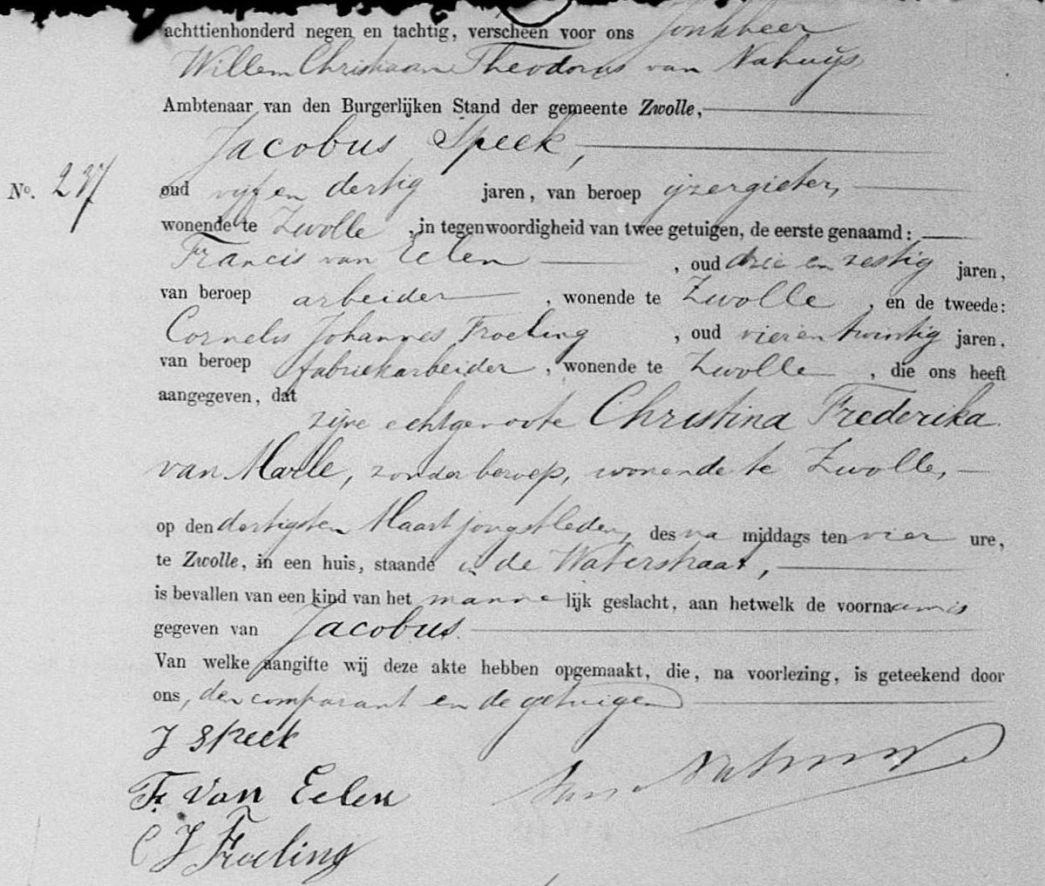 achttienhonderd negen en tachtig, verscheen voor ons Jonkheer
Willem Christiaan Theodorus van Nahuijs
Ambtenaar van den Burgerlijken Stand der gemeente Zwolle,
Jacobus Speek,
No. 237
oud vijf en dertig jaren, van beroep ijzergieter,
wonende te Zwolle, in tegenwoordigheid van twee getuigen, de eerste genaamd:
Francis van Eelen, oud drie en zestig jaren,
van beroep arbeider, wonende te Zwolle, en de tweede:
Cornelis Johannes Froeling, oud vierentwintig jaren,
van beroep fabriekarbeider, wonende te Zwolle, die ons heeft
aangegeven, dat
zijne echtgenoote Christina Frederika
van Marle, zonder beroep, wonende te Zwolle,
op den dertigsten Maart jongstleden, des na middags ten vier ure,
te Zwolle, in een huis, staande in de Waterstraat,
is bevallen van een kind van het mannelijk geslacht, aan hetwelk de voornaam is
gegeven van Jacobus.
Van welke aangifte wij deze akte hebben opgemaakt, die, na voorlezing, is geteekend door
ons, den comparant en de getuigen
J Speek
Fr. van Eelen
van Nahuijs
C J Froeling